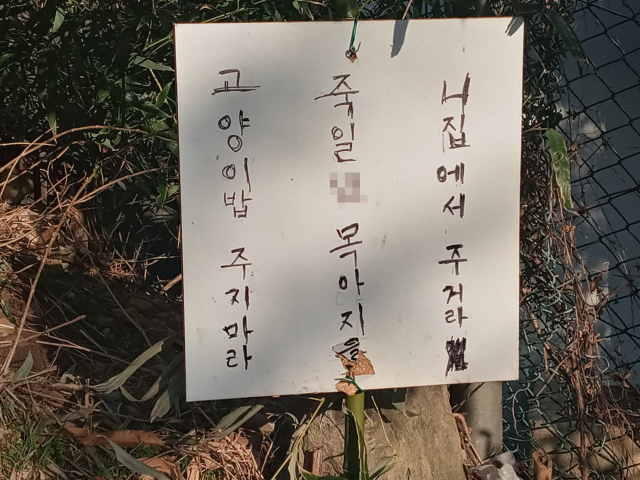 고양이밥 주지마라
죽일 목아지을
니집에서 주거라